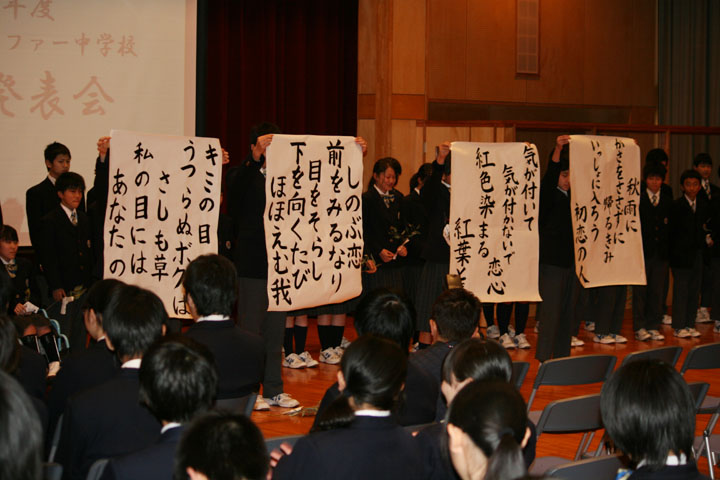 年度
ファー中学校
発表会
キミの目
うつらぬボクは
さしも草
私の目には
あなたの
しのぶ恋
前をみるなり
目をそらし
下を向くたび
ほほえむ我
気が付いて
気が付かないで
恋心
紅色染まる
紅葉
秋雨に
かさをささずに
帰るきみ
いっしょに入ろう
初恋の人